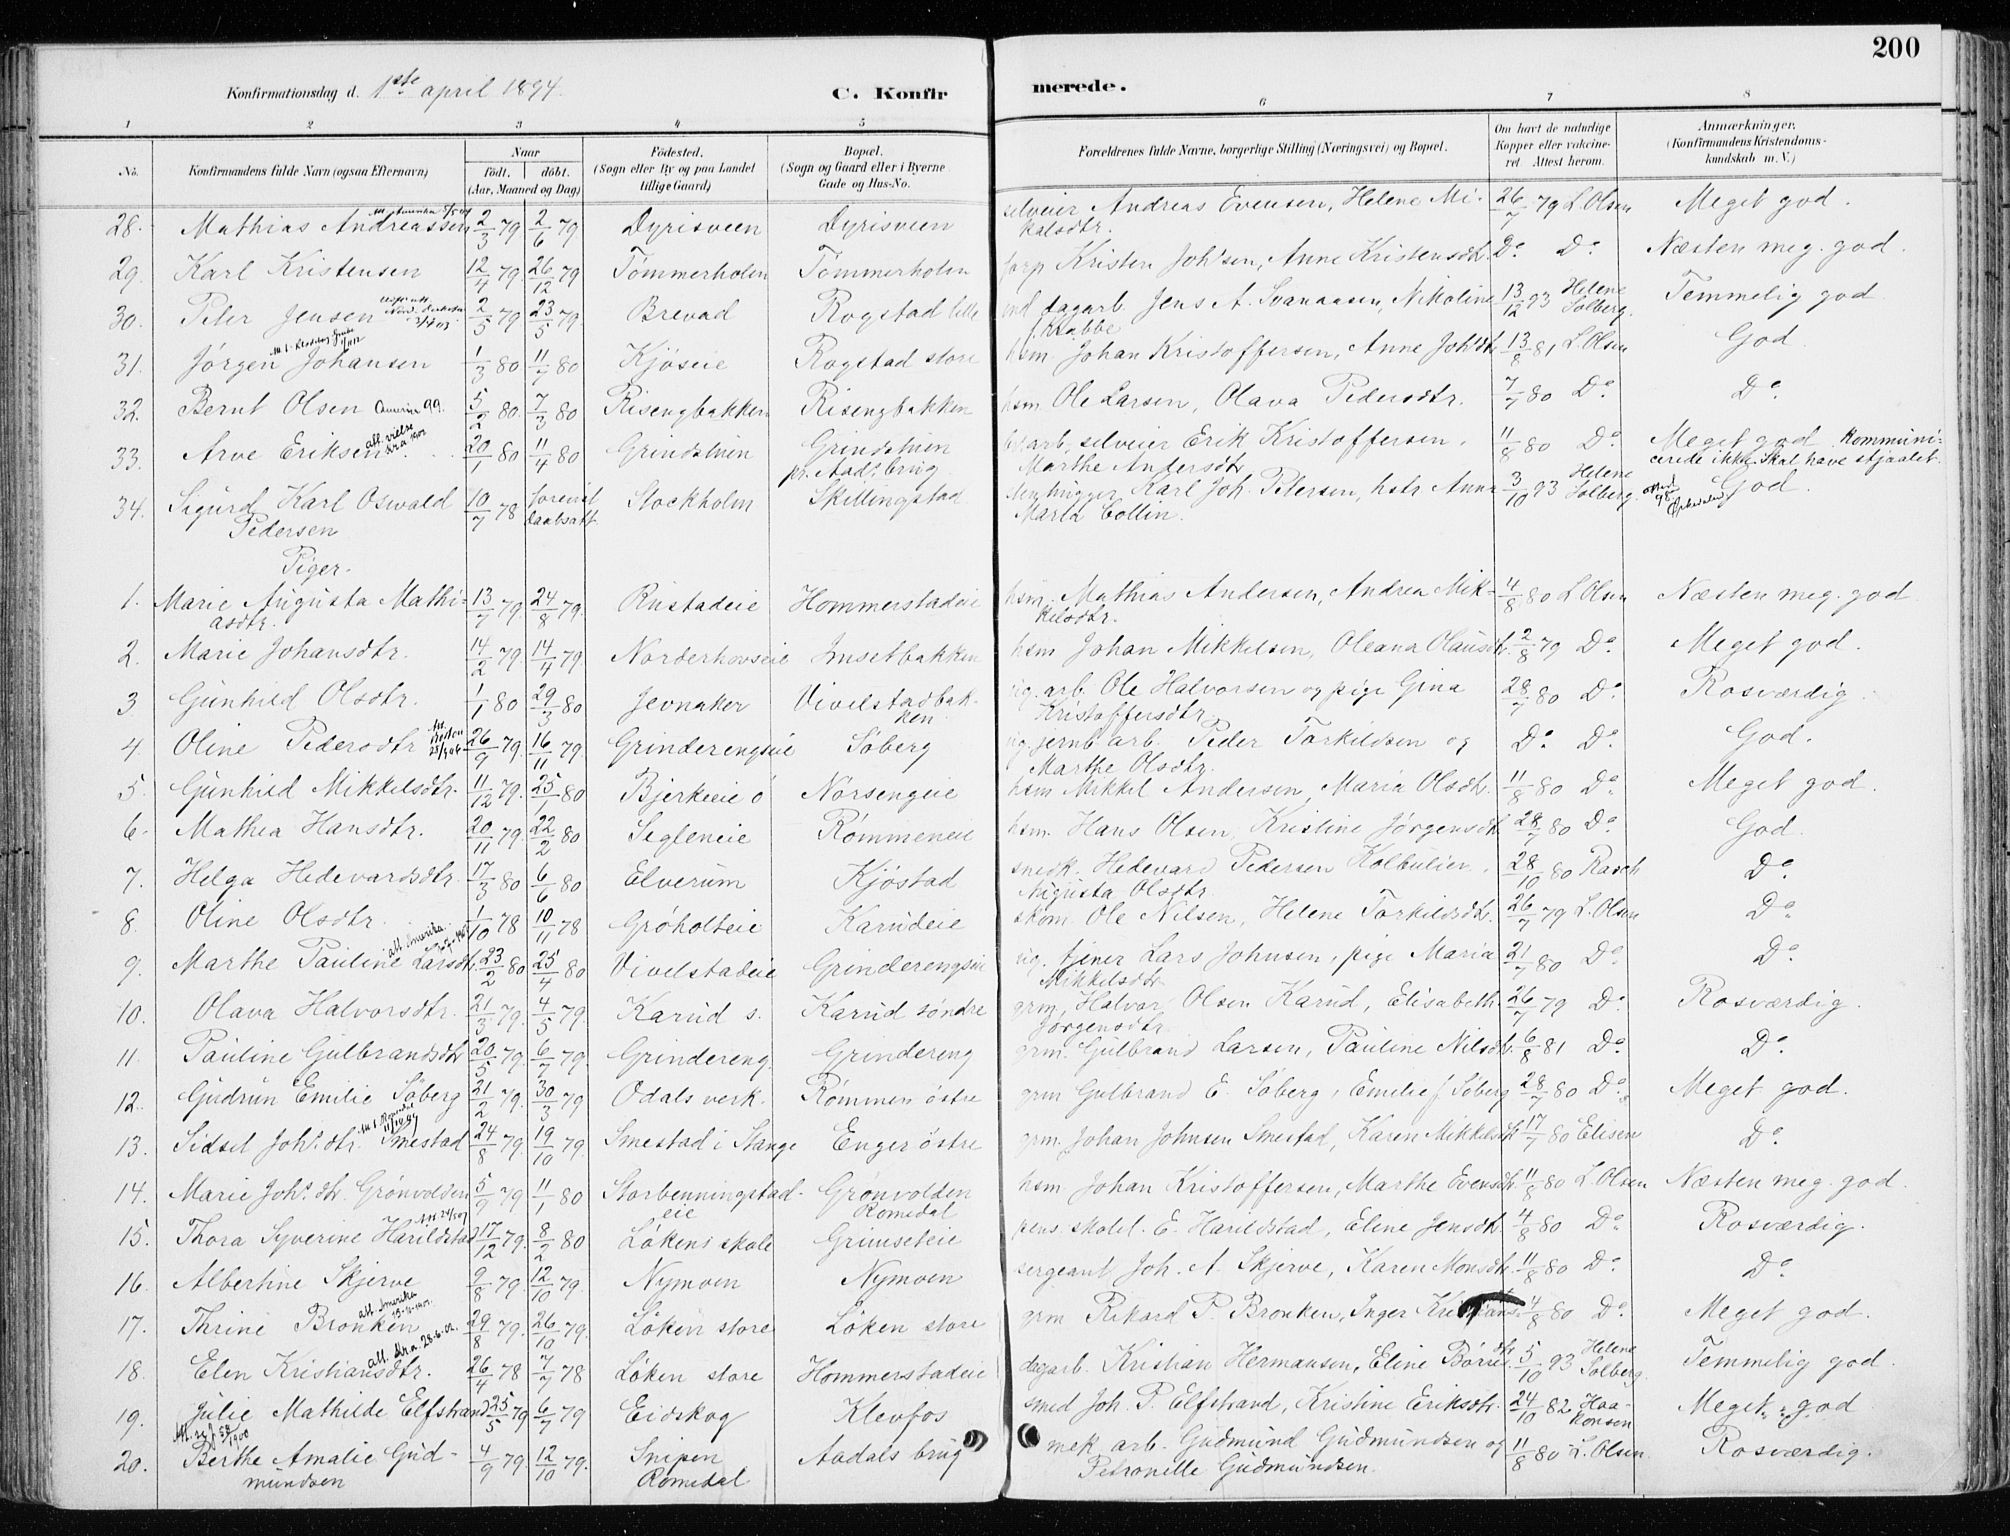 200
Konfirmationsdag d. 1ste april 1894. C. Konfirmerede.
1 2 3 4 5 6 7 8
No. Konfirmandens fulde Navn (ogsaa Efternavn) Naar født. døbt. (Aar, Maaned og Dag) Fødested. (Sogn eller By og paa Landet tillige Gaard) Bopæl. (Sogn og Gaard eller i Byerne Gade og Hus-No. Forældrenes fulde Navne, borgerlige Stilling (Næringsvei) og Bopæl. Om havt de naturlige Kopper eller vakcineret. Attest herom. Anmærkninger. (Konfirmandens Kristendomskundskab m. V.)
28. Mathias Andreassen 2/3 79 2/6 79 Dyrisveen Dyrisveen selveier Andreas Evensen, Helene Mikalsdtr. 26/7 79 L. Olsen Meget god.
29. Karl Kristensen 12/4 79. 26/12 79 Tømmerholen Tømmerholen forp Kristen Joh'sen, Anne Kristensdt. Do Do. Næsten meg. god.
30. Peter Jensen 2/5 79 23/5 79. Brevad Rogstad lille ind dagarb. Jens A. Svanaasen, Nikoline f. Krabbe 13/12 93 Helene Solberg. Temmelig god
31. Jørgen Johansen 1/3 80 11/7 80 Kjøseie Rogstad store hsm. Johan Kristoffersen, Anne Joh'dtr 13/8 81 L. Olsen God
32. Bernt Olsen Amerika 99. 5/2 80. 7/3 80 Risengbakken Risengbakken hsm Ole Larsen, Olava Pedersdtr. 7/7 80 Do. Do.
33. Arve Eriksen att. vielse 20/1 80 11/4 80 Grindstuen Grindstuen pr. Aad. brug arb. selveier Erik Kristoffersen, Marthe Andersdtr 11/8 80 Do. Meget god. Kommunicerede ikke. Skal have stjaalet.
34. Sigurd Karl Oswald Pedersen 10/7 78 Stockholm Skillingstad stenhugger Karl Joh. Petersen, hstr Anna Maria Collin. 3/10 93 Helene Solberg. God.
Piger.
1. Marie Augusta Mathiasdtr. 13/7 79. 24/8 79. Rustadeie Hommerstadeie hsm. Mathias Andersen, Andrea Mikkelsdtr. 4/8 80 L Olsen Næsten meg. god
2. Marie Johansdtr. 14/2 79. 14/4 79. Norderhovseie Imsetbakken hsm Johan Mikkelsen, Oleana Olausdt. 2/8 79 Do. Meget god.
3 Gunhild Olsdtr. 1/1 80 29/3 80 Jevnaker Vivelstadbakken ug. arb. Ole Halvorsen og pige Gina Kristoffersdtr 28/7 80 Do. Rosværdig
4. Oline Pedersdtr 26/9 79. 16/11 79. Grinderengseie Søberg ug jernb. arb. Peder Torkildsen og Marthe Olsdtr. Do. Do. God.
5. Gunhild Mikkelsdtr. 11/12 79. 25/1 80 Bjerkeeie ø Norsengeie hsm Mikkel Andersen, Maria Olsdt. 11/8 80 Do. Meget god.
6. Mathea Hansdtr. 20/11 79. 22/2 80 Segleneie Rømmeneie hsm. Hans Olsen, Kristine Jørgensdt 28/7 80 Do. God.
7. Helga Hedevardsdtr. 17/3 80 6/6 80. Elverum Kjøstad snedk. Hedevard Pedersen Kolbulien, Augusta Olsdtr. 28/10 80 Rasch Do.
8. Oline Olsdtr. 1/10 78 10/11 78 Grøholteie Karudeie skom. Ole Nilsen, Helene Torkildsdt. 26/7 79 L. Olsen Do.
9. Marthe Pauline Larsdt. att. Amerika 23/2 80 25/4 80 Vivelstadeie Grinderengseie ug. tjener Lars Johnsen, pige Maria Mikkelsdtr 21/7 80 Do. Do.
10. Olava Halvorsdtr. 21/3 79. 4/5 79. Karud s. Karud søndre grm, Halvor Olsen Karud, Elisabeth Jørgensdtr 26/7 79 Do. Rosværdig.
11. Pauline Gulbrandsdtr 20/5 79. 6/7 79. Grindereng Grindereng grm. Gulbrand Larsen, Pauline Nilsdt. 6/8 81 Do. Do.
12. Gudrun Emilie Søberg 21/2 79. 30/3 79 Odals verk. Rømmen østre grm Gulbrand E. Søberg, Emilie f. Søberg 28/7 80 Do. Meget god.
13. Sidsel Joh.s dtr. Smestad 24/8 79. 19/10 79. Smestad i Stange Enger østre grm. Johan Johnsen Smestad, Karen Mikkelsdt 17/7 80 Elisen Do.
14. Marie Joh.s dtr. Grønvolden 5/9 79 11/1 80 Storbenningstadeie Grønvolden Romedal hsm Johan Kristoffersen, Marthe Evensdt. 11/8 80 L. Olsen Næsten meg. god.
15. Thora Syverine Harildstad 17/12 79. 8/2 80 Løkens skole Grimseteie pens. skolel. E. Harildstad, Eline Jensdt. 4/8 80 Do. Rosværdig.
16. Albertine Skjerve 9/8 79. 12/10 79. Nymoen Nymoen sergeant Joh. A. Skjerve, Karen Monsdt. 11/8 80 Do. Do.
17. Thrine Bronken att. Amerika 29/8 79. 26/10 79. Løken store Løken store grm Rikard P. Bronken, Inger 4/8 80 Do. Meget god.
18. Elen Kristiansdtr. 26/4 78 7/7 78 Løken store Hommerstadeie dagarb. Kristian Hermansen, Eline Børresdtr 5/10 93 Helene Solberg. Temmelig god.
19. Julie Mathilde Elfstrand 25/5 79 6/7 79 Eidskog Klevfos smed Joh. P. Elfstrand, Kristine Eriksdtr. 24/10 82 Haakonsen Meget god
20. Berthe Amalie Gudmundsen 4/9 79. 12/10 79. Snipen Romedal Aadals brug mek. arb. Gudmund Gudmundsen og Petronelle Gudmundsen. 11/8 80 L. Olsen Rosværdig.